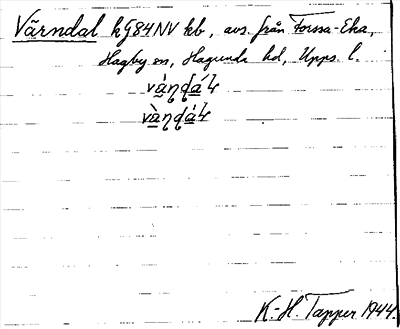 Värndal kg 84 NV kb, avs. från Forssa-Eka,
Hagby sn, Hagunda hd, Upps. l.
K.-H. Tapper 1944.